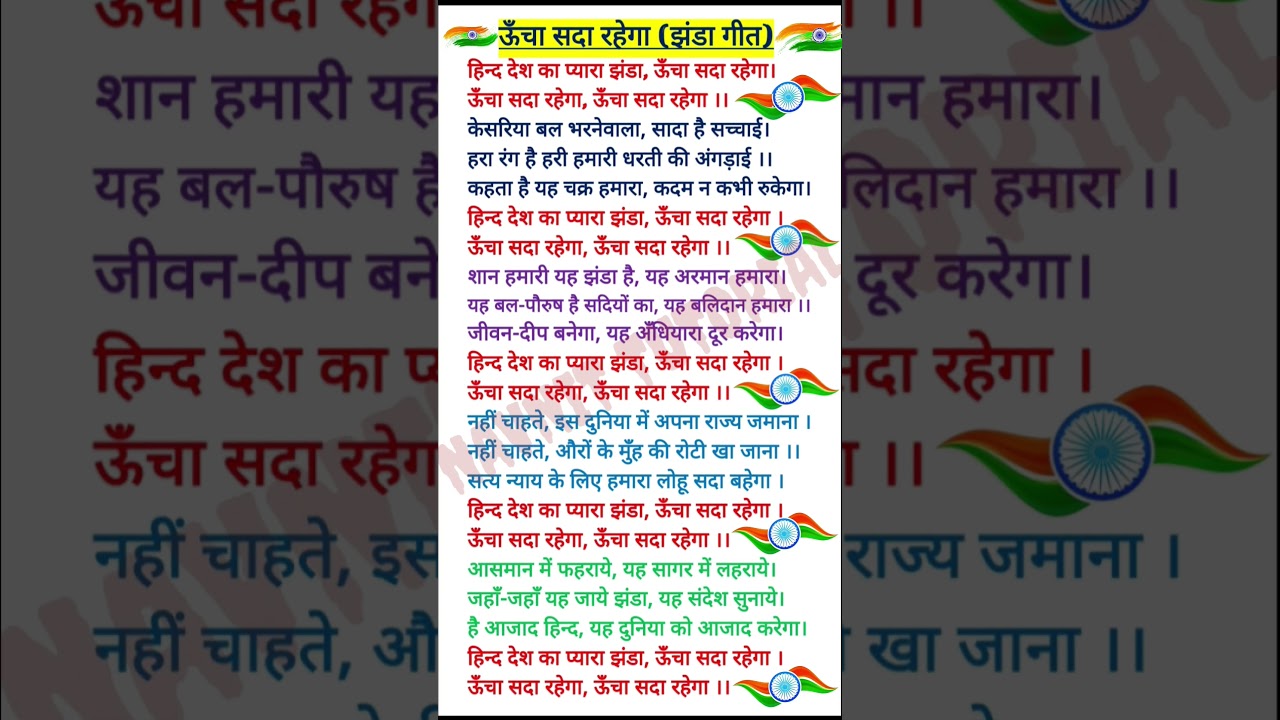 ऊँचा सदा रहेगा (झंडा गीत)
हिन्द देश का प्यारा झंडा, ऊँचा सदा रहेगा।
ऊँचा सदा रहेगा, ऊँचा सदा रहेगा ।।
केसरिया बल भरनेवाला, सादा है सच्चाई।
हरा रंग है हरी हमारी धरती की अंगड़ाई ।।
कहता है यह चक्र हमारा, कदम न कभी रुकेगा।
हिन्द देश का प्यारा झंडा, ऊँचा सदा रहेगा ।
ऊँचा सदा रहेगा, ऊँचा सदा रहेगा ।।
शान हमारी यह झंडा है, यह अरमान हमारा।
यह बल-पौरुष है सदियों का, यह बलिदान हमारा ।।
जीवन-दीप बनेगा, यह अँधियारा दूर करेगा।
हिन्द देश का प्यारा झंडा, ऊँचा सदा रहेगा ।
ऊँचा सदा रहेगा, ऊँचा सदा रहेगा ।।
नहीं चाहते, इस दुनिया में अपना राज्य जमाना ।
नहीं चाहते, औरों के मुँह की रोटी खा जाना ।।
सत्य न्याय के लिए हमारा लोहू सदा बहेगा ।
हिन्द देश का प्यारा झंडा, ऊँचा सदा रहेगा ।
ऊँचा सदा रहेगा, ऊँचा सदा रहेगा ।।
आसमान में फहराये, यह सागर में लहराये।
जहाँ-जहाँ यह जाये झंडा, यह संदेश सुनाये।
है आजाद हिन्द, यह दुनिया को आजाद करेगा।
हिन्द देश का प्यारा झंडा, ऊँचा सदा रहेगा ।
ऊँचा सदा रहेगा, ऊँचा सदा रहेगा ।।